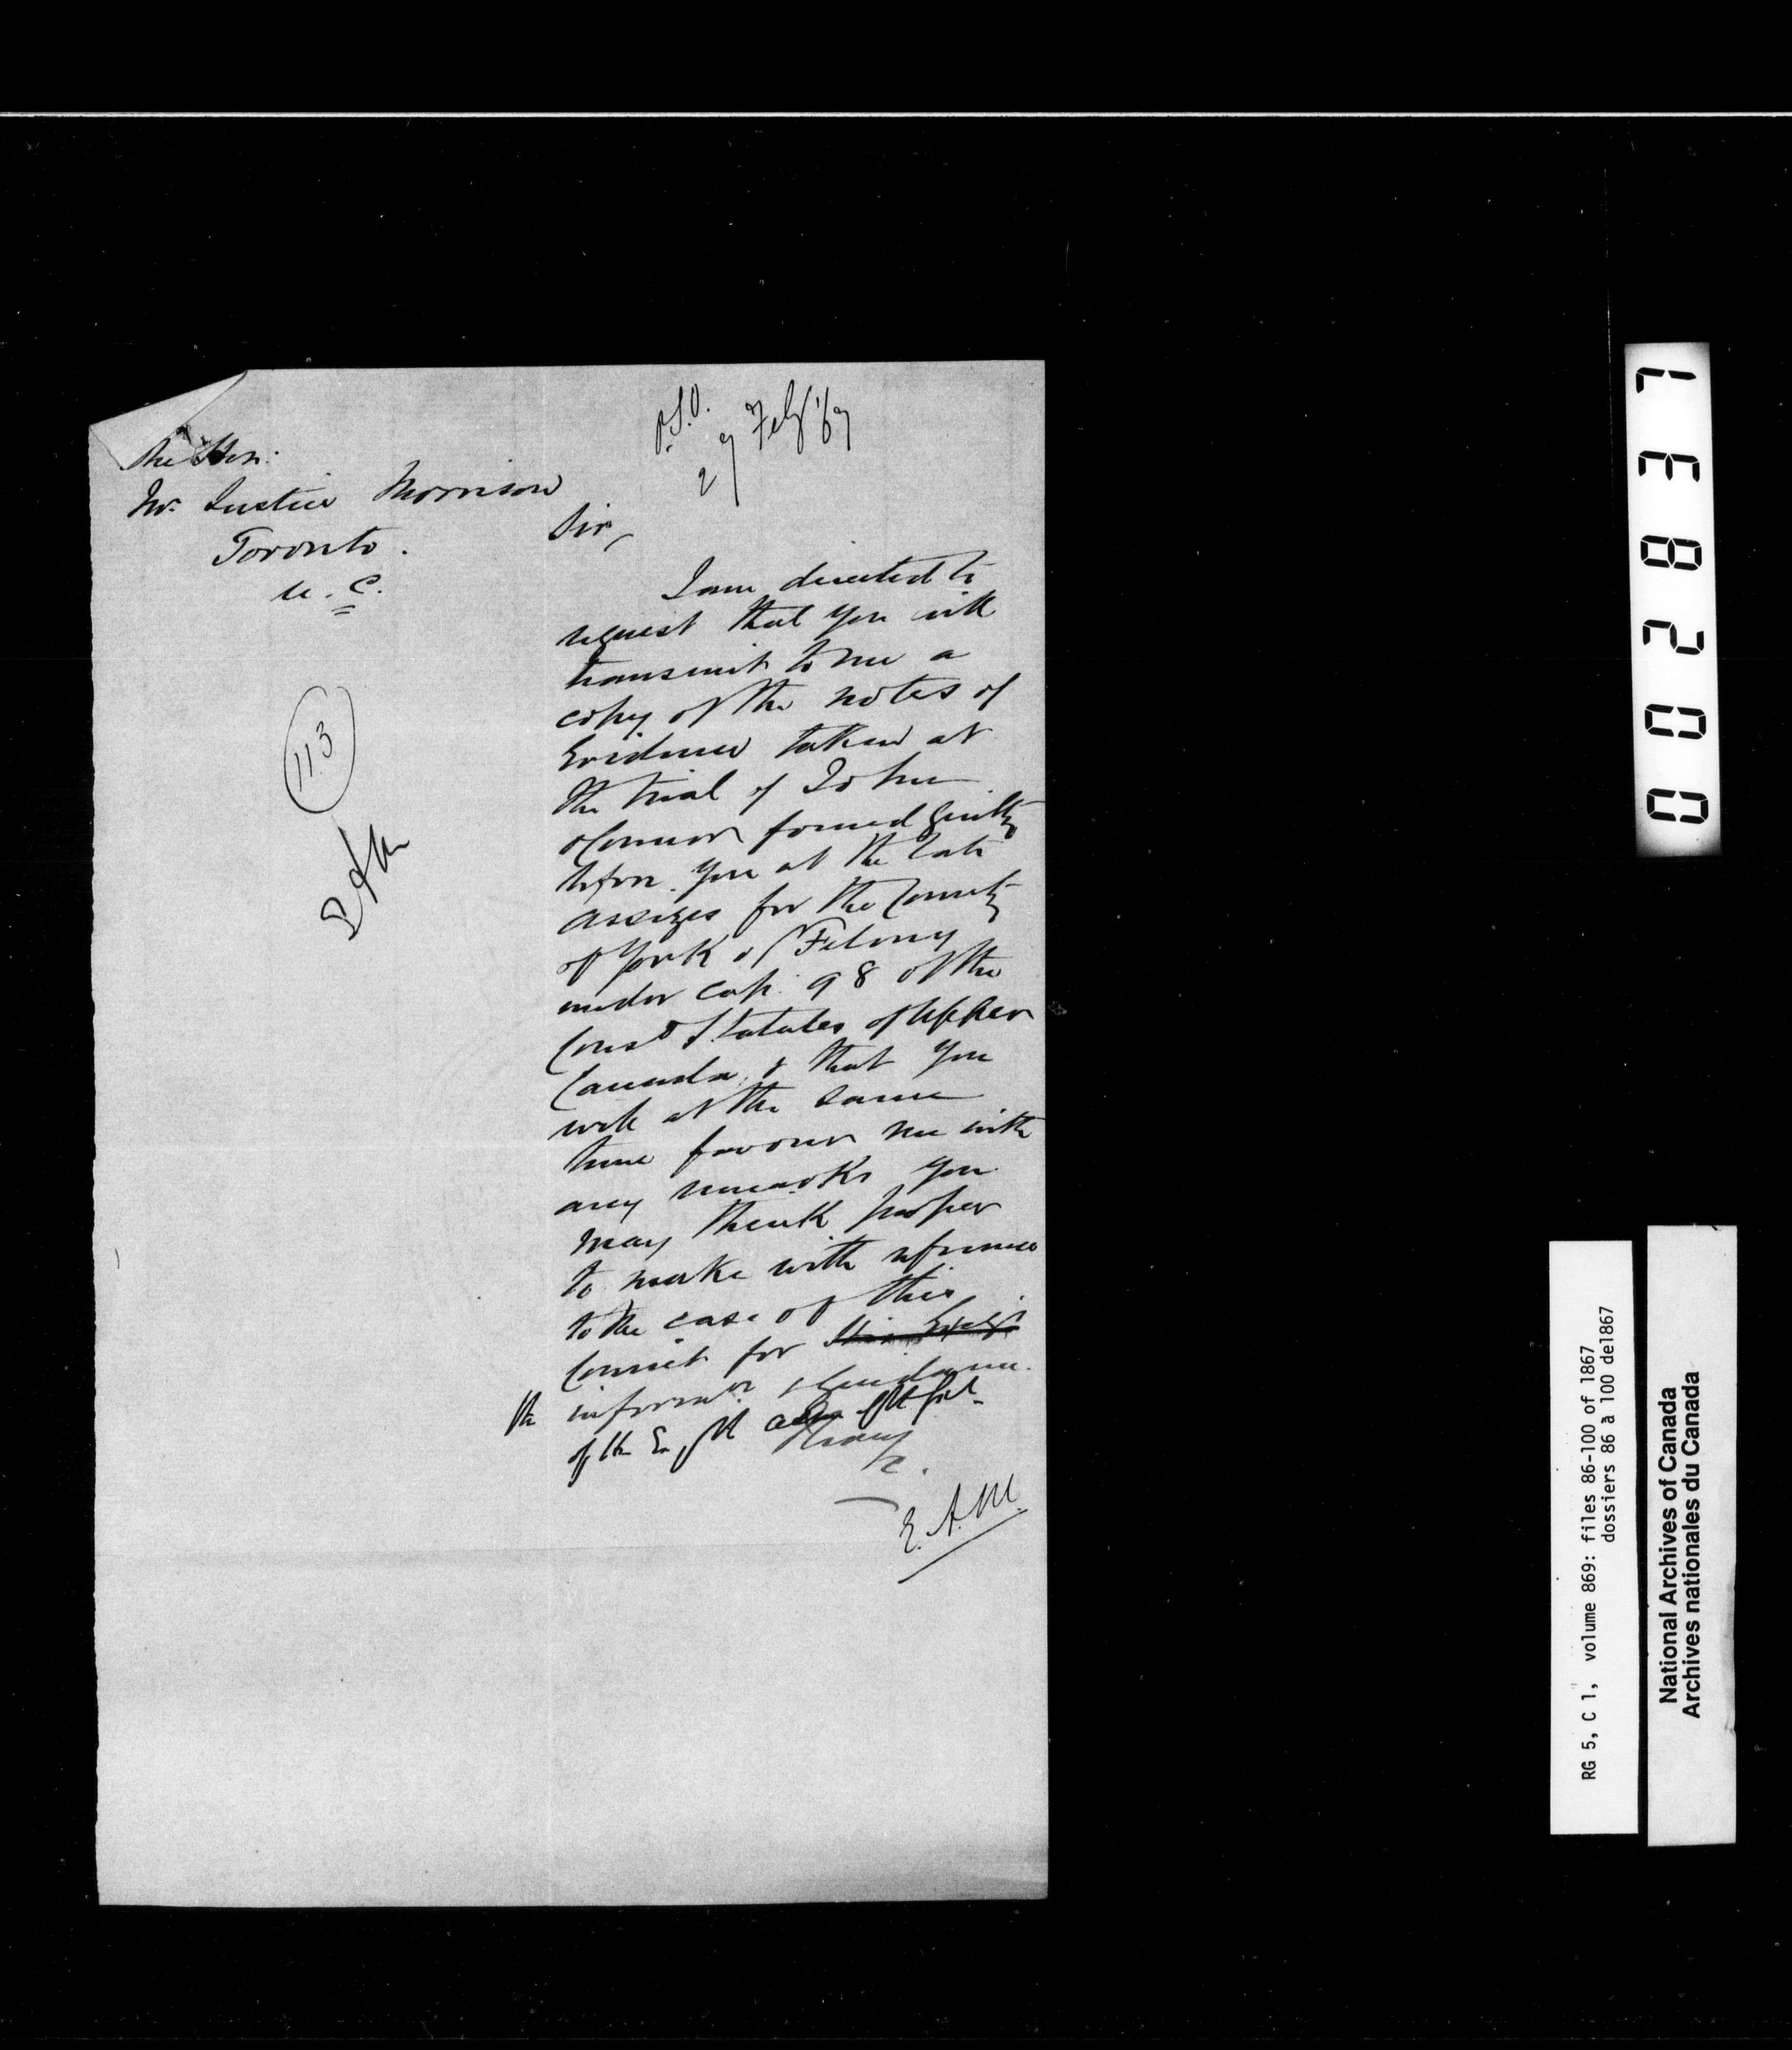 P.S.O.
27 Feby '67
The Hon:
Mr. Justice Morrison
Toronto.
U. C.
113
Sir,
I am directed to
request that you will
transmit to me a
copy of the notes of
Evidence taken at
the trial of John
O'Connor found guilty
before you at the late
assizes for the County
of York of Felony
under cap. 98 of the
Consd Statutes of Upper
Canada, & that you
will at the same
time favour me with
any remarks you
may think proper
to make with reference
to the case of this
Convict for
the informn & guidance
of the
E. A. M.
0002837
RG 5, C 1, volume 869: files 86-100 of 1867
dossiers 86 à 100 de1867
National Archives of Canada
Archives nationales du Canada